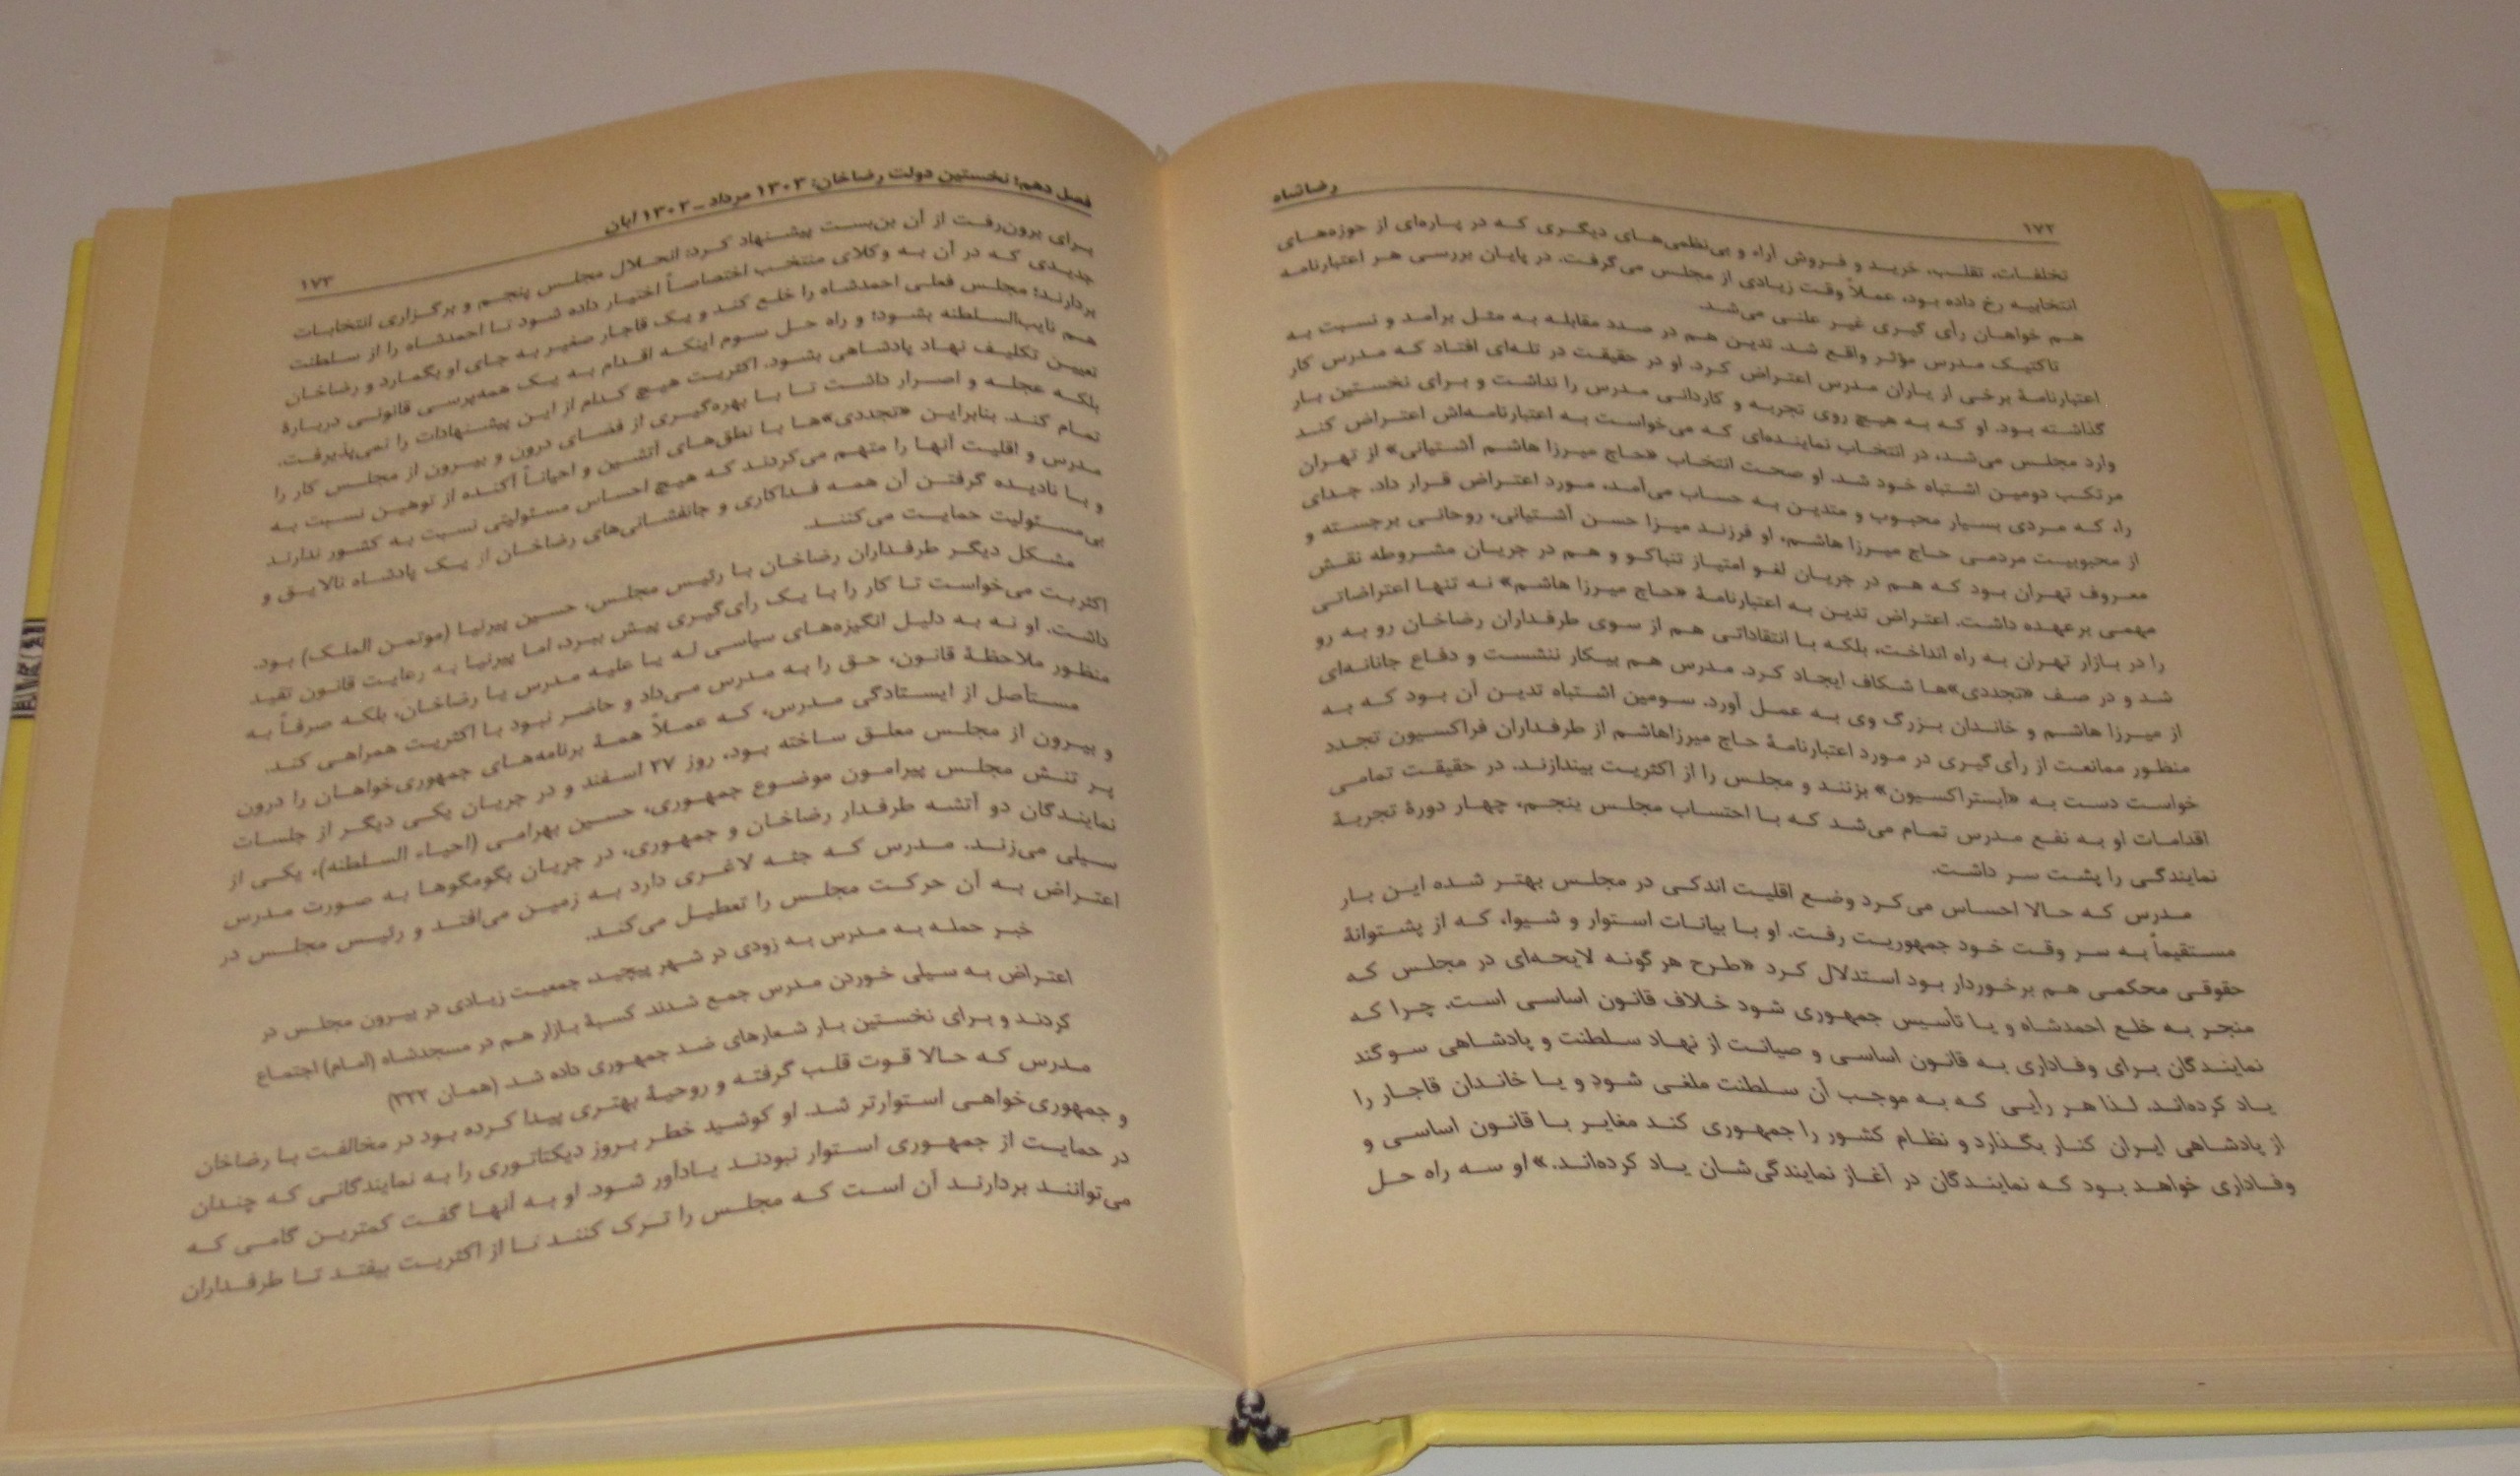 ۱۷۲
رضاشاه
تخلفات، تقلب، خرید و فروش آراء و بی‌نظمی‌های دیگری که در پاره‌ای از حوزه‌های
انتخابیه رخ داده بود، عملاً وقت زیادی از مجلس می‌گرفت. در پایان بررسی هر اعتبارنامه
هم خواهان رأی گیری غیر علنی می‌شد.
تاکتیک مدرس مؤثر واقع شد. تدین هم در صدد مقابله به مثل برآمد و نسبت به
اعتبارنامهٔ برخی از یاران مدرس اعتراض کرد. او در حقیقت در تله‌ای افتاد که مدرس کار
گذاشته بود. او که به هیچ روی تجربه و کاردانی مدرس را نداشت و برای نخستین بار
وارد مجلس می‌شد، در انتخاب نماینده‌ای که می‌خواست به اعتبارنامه‌اش اعتراض کند
مرتکب دومین اشتباه خود شد. او صحت انتخاب «حاج میرزا هاشم آشتیانی» از تهران
را، که مردی بسیار محبوب و متدین به حساب می‌آمد، مورد اعتراض قرار داد. جدای
از محبوبیت مردمی حاج میرزا هاشم، او فرزند میزا حسن آشتیانی، روحانی برجسته و
معروف تهران بود که هم در جریان لغو امتیاز تنباکو و هم در جریان مشروطه نقش
مهمی برعهده داشت. اعتراض تدین به اعتبارنامهٔ «حاج میرزا هاشم» نه تنها اعتراضاتی
را در بازار تهران به راه انداخت، بلکه با انتقاداتی هم از سوی طرفداران رضاخان رو به رو
شد و در صف «تجددی»ها شکاف ایجاد کرد. مدرس هم بیکار ننشست و دفاع جانانه‌ای
از میرزا هاشم و خاندان بزرگ وی به عمل آورد. سومین اشتباه تدین آن بود که به
منظور ممانعت از رأی‌گیری در مورد اعتبارنامهٔ حاج میرزاهاشم از طرفداران فراکسیون تجدد
خواست دست به «آبستراکسیون» بزنند و مجلس را از اکثریت بیندازند. در حقیقت تمامی
اقدامات او به نفع مدرس تمام می‌شد که با احتساب مجلس پنجم، چهار دورهٔ تجربهٔ
نمایندگی را پشت سر داشت.
مدرس که حالا احساس می‌کرد وضع اقلیت اندکی در مجلس بهتر شده این بار
مستقیماً به سر وقت خود جمهوریت رفت. او با بیانات استوار و شیوا، که از پشتوانهٔ
حقوقی محکمی هم برخوردار بود استدلال کرد «طرح هر گونه لایحه‌ای در مجلس که
منجر به خلع احمدشاه و یا تأسیس جمهوری شود خلاف قانون اساسی است. چرا که
نمایندگان برای وفاداری به قانون اساسی و صیانت از نهاد سلطنت و پادشاهی سوگند
یاد کرده‌اند. لذا هر رأیی که به موجب آن سلطنت ملغی شود و یا خاندان قاجار را
از پادشاهی ایران کنار بگذارد و نظام کشور را جمهوری کند مغایر با قانون اساسی و
وفاداری خواهد بود که نمایندگان در آغاز نمایندگی‌شان یاد کرده‌اند.» او سه راه حل
فصل دهم: نخستین دولت رضاخان: ۱۳۰۳ مرداد - ۱۳۰۲ آبان
۱۷۳
برای برون‌رفت از آن بن‌بست پیشنهاد کرد: انحلال مجلس پنجم و برگزاری انتخابات
جدیدی که در آن به وکلای منتخب اختصاصاً اختیار داده شود تا احمدشاه را از سلطنت
بردارند؛ مجلس فعلی احمدشاه را خلع کند و یک قاجار صغیر به جای او بگمارد و رضاخان
هم نایب‌السلطنه بشود؛ و راه حل سوم اینکه اقدام به یک همه‌پرسی قانونی دربارهٔ
تعیین تکلیف نهاد پادشاهی بشود. اکثریت هیچ کدام از این پیشنهادات را نمی‌پذیرفت.
بلکه عجله و اصرار داشت تا با بهره‌گیری از فضای درون و بیرون از مجلس کار را
تمام کند. بنابراین «تجددی»ها با نطق‌های آتشین و احیاناً آکنده از توهین نسبت به
مدرس و اقلیت آنها را متهم می‌کردند که هیچ احساس مسئولیتی نسبت به کشور ندارند
و با نادیده گرفتن آن همه فداکاری و جانفشانی‌های رضاخان از یک پادشاه نالایق و
بی‌مسئولیت حمایت می‌کنند.
مشکل دیگر طرفداران رضاخان با رئیس مجلس، حسین پیرنیا (موتمن الملک) بود.
اکثریت می‌خواست تا کار را با یک رأی‌گیری پیش ببرد، اما پیرنیا به رعایت قانون تقید
داشت. او نه به دلیل انگیزه‌های سیاسی له یا علیه مدرس یا رضاخان، بلکه صرفاً به
منظور ملاحظهٔ قانون، حق را به مدرس می‌داد و حاضر نبود با اکثریت همراهی کند.
مستأصل از ایستادگی مدرس، که عملاً همهٔ برنامه‌های جمهوری‌خواهان را درون
و بیرون از مجلس معلق ساخته بود، روز ۲۷ اسفند و در جریان یکی دیگر از جلسات
پر تنش مجلس پیرامون موضوع جمهوری، حسین بهرامی (احیاء السلطنه)، یکی از
نمایندگان دو آتشه طرفدار رضاخان و جمهوری، در جریان بگومگوها به صورت مدرس
سیلی می‌زند. مدرس که جثه لاغری دارد به زمین می‌افتد و رئیس مجلس در
اعتراض به آن حرکت مجلس را تعطیل می‌کند.
خبر حمله به مدرس به زودی در شهر پیچید، جمعیت زیادی در بیرون مجلس در
اعتراض به سیلی خوردن مدرس جمع شدند. کسبهٔ بازار هم در مسجدشاه (امام) اجتماع
کردند و برای نخستین بار شعارهای ضد جمهوری داده شد. (همان ۳۳۲)
مدرس که حالا قوت قلب گرفته و روحیهٔ بهتری پیدا کرده بود در مخالفت با رضاخان
و جمهوری‌خواهی استوارتر شد. او کوشید خطر بروز دیکتاتوری را به نمایندگانی که چندان
در حمایت از جمهوری استوار نبودند یادآور شود. او به آنها گفت کمترین گامی که
می‌توانند بردارند آن است که مجلس را ترک کنند تا از اکثریت بیفتد تا طرفداران